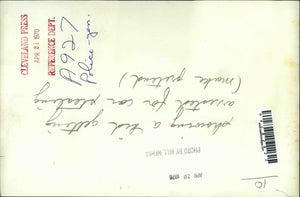 CLEVELAND PRESS
APR 21 1970
REFERENCE DEPT.
A927
Police-gen.
showing a kid getting
arrested for car stealing
(make pretend)
PHOTO BY BILL NEHEZ
APR 20 1970
10